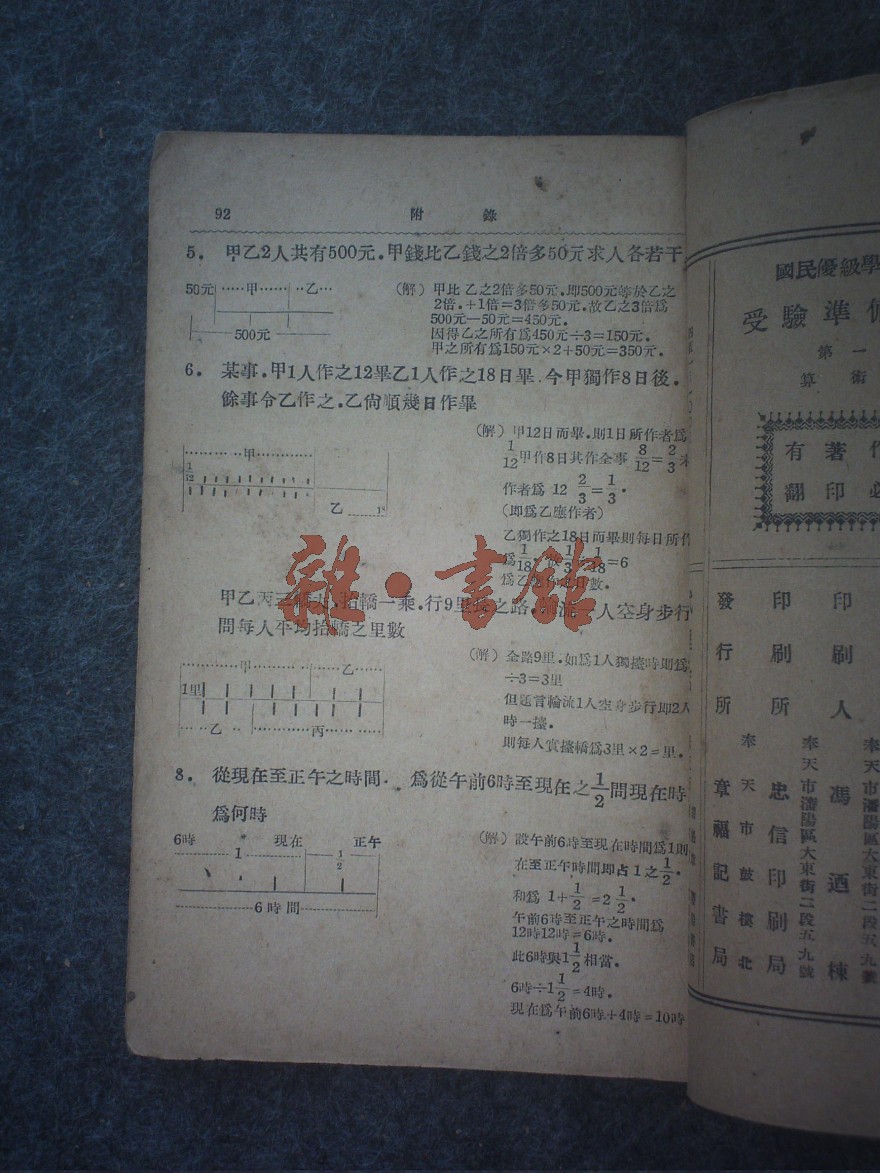 92 附 錄
5. 甲乙2人共有500元.甲錢比乙錢之2倍多50元求人各若干
50元 甲 乙
500元
(解) 甲比 乙之2倍多50元.即500元等於乙之
2倍.+1倍=3倍多50元.故乙之3倍爲
500元—50元=450元.
因得乙之所有爲450元÷3=150元.
甲之所有爲150元×2+50元=350元.
6. 某事.甲1人作之12畢乙1人作之18日畢.今甲獨作8日後.
餘事令乙作之.乙尙順幾日作畢
甲
1/12
乙
(解) 甲12日而畢.則1日所作者爲
1/12甲作8日其作全事 8/12=2/3
作者爲 12 2/3=1/3.
(即爲乙應作者)
乙獨作之18日而畢則每日所作
爲1/18 1/3 1/18=6
爲乙 數.
甲乙丙三轎夫.抬轎一乘.行9里 之路. 人空身步行
問每人平均抬轎之里數
甲 乙
1里
乙 丙
(解) 全路9里.如爲1人獨擡時則爲
÷3=3里
但題言輪流1人空身步行即2人
時一擡.
則每人實擡轎爲3里×2=里.
8. 從現在至正午之時間. 爲從午前6時至現在之1/2問現在時
爲何時
6時 現在 正午
1 1/2
6時間
(解) 設午前6時至現在時間爲1則
在至正午時間即占1之1/2.
和爲 1+1/2=2 1/2.
午前6時至正午之時間爲
12時12時=6時.
此6時與1 1/2相當.
6時÷1 1/2=4時.
現在爲午前6時+4時=10時
雜·書館
國民優級學
受驗準備
第一
算術
有著作
翻印必
印刷人 馮 迺 棟
奉天市瀋陽區大東街二段五九號
印刷所 忠信印刷局
奉天市瀋陽區大東街二段五九號
發行所 章福記書局
奉天市鼓樓北